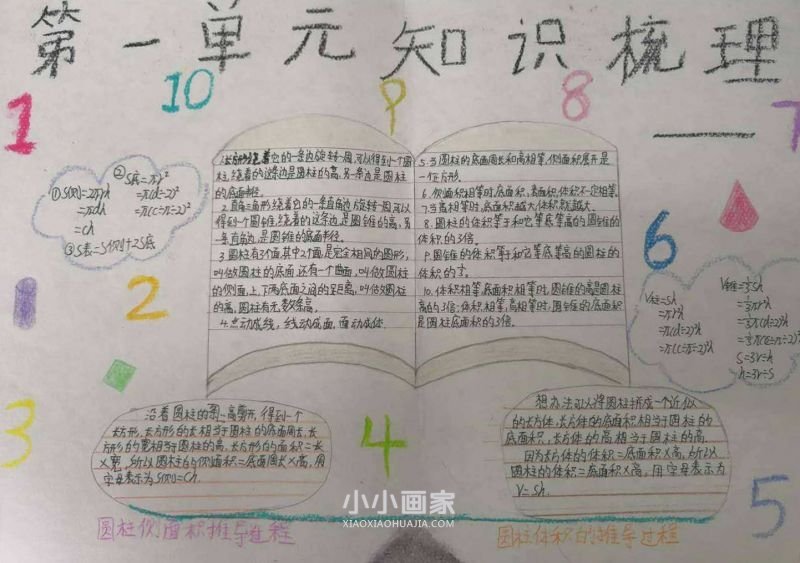 第一单元知识梳理
1
10
9
8
7
1.长方形绕着它的一条边旋转一周,可以得到一个圆
柱,绕着的这条边是圆柱的高,另一条边是圆柱
的底面半径。
2.直角三角形绕着它的一条直角边旋转一周,可以
得到一个圆锥,绕着的这条边是圆锥的高,另一
条直角边是圆锥的底面半径。
3.圆柱有3个面,其中2个面是完全相同的圆形,
叫做圆柱的底面,还有一个曲面,叫做圆柱
的侧面,上、下两底面之间的距离,叫做圆柱
的高,圆柱有无数条高。
4.点动成线,线动成面,面动成体。
5.当圆柱的底面周长和高相等,侧面积展开是
一个正方形。
6.侧面积相等时,底面积、表面积、体积不一定相等。
7.当高相等时,底面积越大,体积就越大。
8.圆柱的体积等于和它等底等高的圆锥的
体积的3倍。
9.圆锥的体积等于和它等底等高的圆柱的
体积的⅓。
10.体积相等,底面积相等时,圆锥的高是圆柱
高的3倍;体积相等,高相等时,圆锥的底面积
是圆柱底面积的3倍。
①S侧=2πrh
=πdh
=ch
②S底=πr²
=π(d÷2)²
=π(c÷π÷2)²
③S表=S侧+2S底
2
6
V柱=Sh
=πr²h
=π(d÷2)²h
=π(c÷π÷2)²h
V锥=⅓Sh
=⅓πr²h
=⅓π(d÷2)²h
=⅓π(c÷π÷2)²h
S=3V÷h
h=3V÷S
3
沿着圆柱的一高剪开,得到一个
长方形,长方形的长相当于圆柱的底面周长,长
方形的宽相当于圆柱的高,长方形的面积=长
×宽,所以圆柱的侧面积=底面周长×高,用
字母表示为S侧=Ch。
圆柱侧面积推导过程
4
想办法可以将圆柱拼成一个近似
的长方体,长方体的底面积相当于圆柱的
底面积,长方体的高相当于圆柱的高。
因为长方体的体积=底面积×高,所以
圆柱的体积=底面积×高,用字母表示为
V=Sh。
圆柱体积的推导过程
5
小小画家
XIAOXIAOHUAJIA.COM